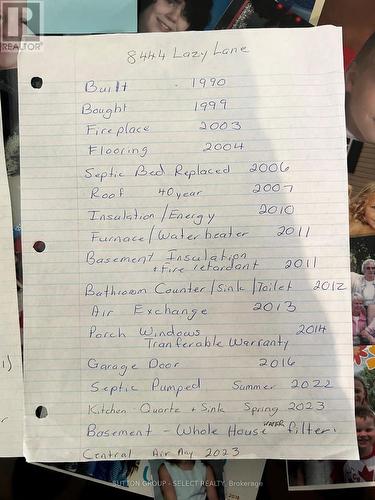 REALTOR
8444 Lazy Lane
Built 1990
Bought 1999
Fireplace 2003
Flooring 2004
Septic Bed Replaced 2006
Roof 40 year 2007
Insulation/Energy 2010
Furnace/Water heater 2011
Basement Insulation
+ Fire retardant 2011
Bathroom Counter/Sink/Toilet 2012
Air Exchange 2013
Porch Windows 2014
Tranferable Warranty
Garage Door 2016
Septic Pumped Summer 2022
Kitchen Quartz + Sink Spring 2023
Basement - Whole House water filter.
Central Air May 2023
SUTTON GROUP - SELECT REALTY,